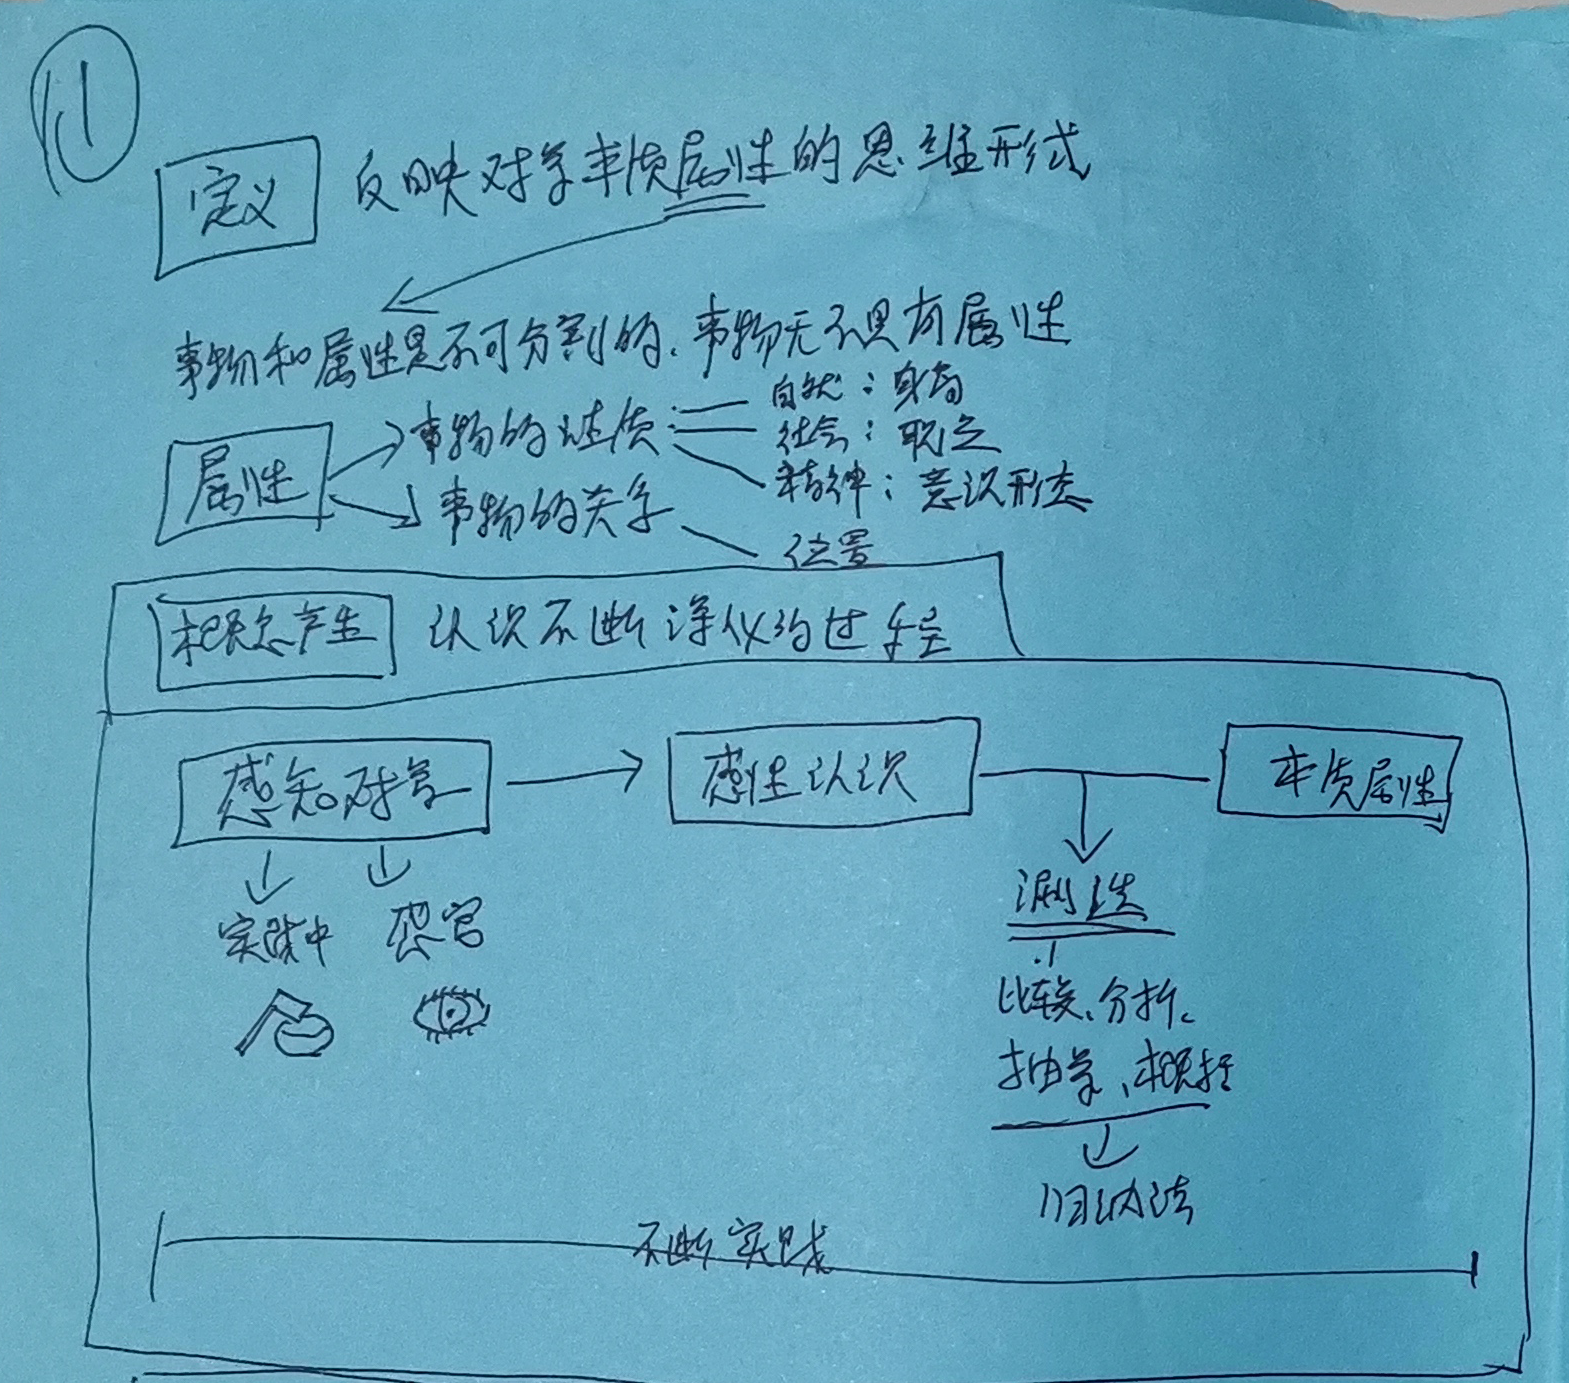 ①
定义 反映对象本质属性的思维形式
事物和属性是不可分割的、事物无不具有属性
属性
事物的性质
自然：身高
社会：职位
精神：意识形态
事物的关系
位置
概念产生 认识不断深化的过程
感知对象
感性认识
本质属性
实践中 感官
测选
比较、分析、
抽象、概括
归纳法
不断实践